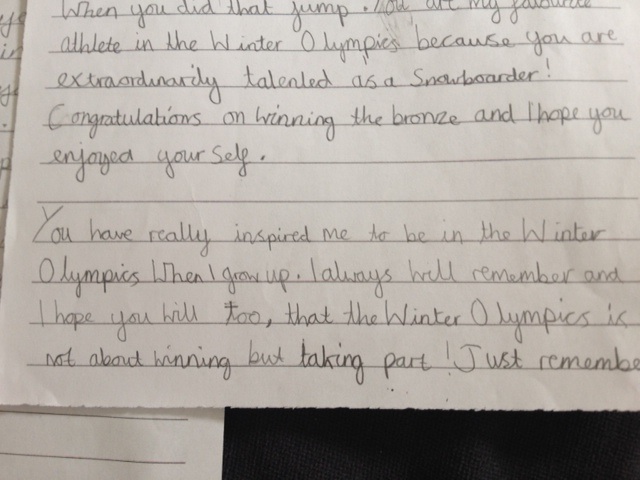 When you did that jump. You are my favourite
athlete in the Winter Olympics because you are
extraordinarily talented as a Snowboarder!
Congratulations on winning the bronze and I hope you
enjoyed your self.
You have really inspired me to be in the Winter
Olympics When I grow up. I always will remember and
I hope you will too, that the Winter Olympics is
not about winning but taking part! Just remembe